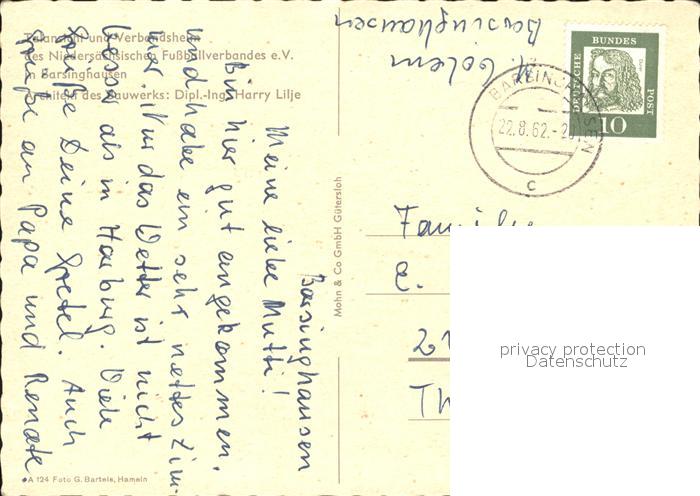 Talansicht und Verbandsheim
des Niedersächsischen Fußballverbandes e.V.
in Barsinghausen
Architekt des Bauwerks: Dipl.-Ing. Harry Lilje
Barsinghausen
Meine liebe Mutti!
Bin hier gut angekommen.
und habe ein sehr nettes Zim-
mer. Nur das Wetter ist nicht
besser als in Harburg. Viele
Grüße Deine Gretel. Auch
Grüße an Papa und Renate
A 124 Foto G. Bartels, Hameln
Mohn & Co GmbH Gütersloh
Barsinghausen
DEUTSCHE BUNDES POST
Dürer
10
BARSINGHAUSEN
22.8.62.-20
c
Familie
E.
21
Th
privacy protection
Datenschutz